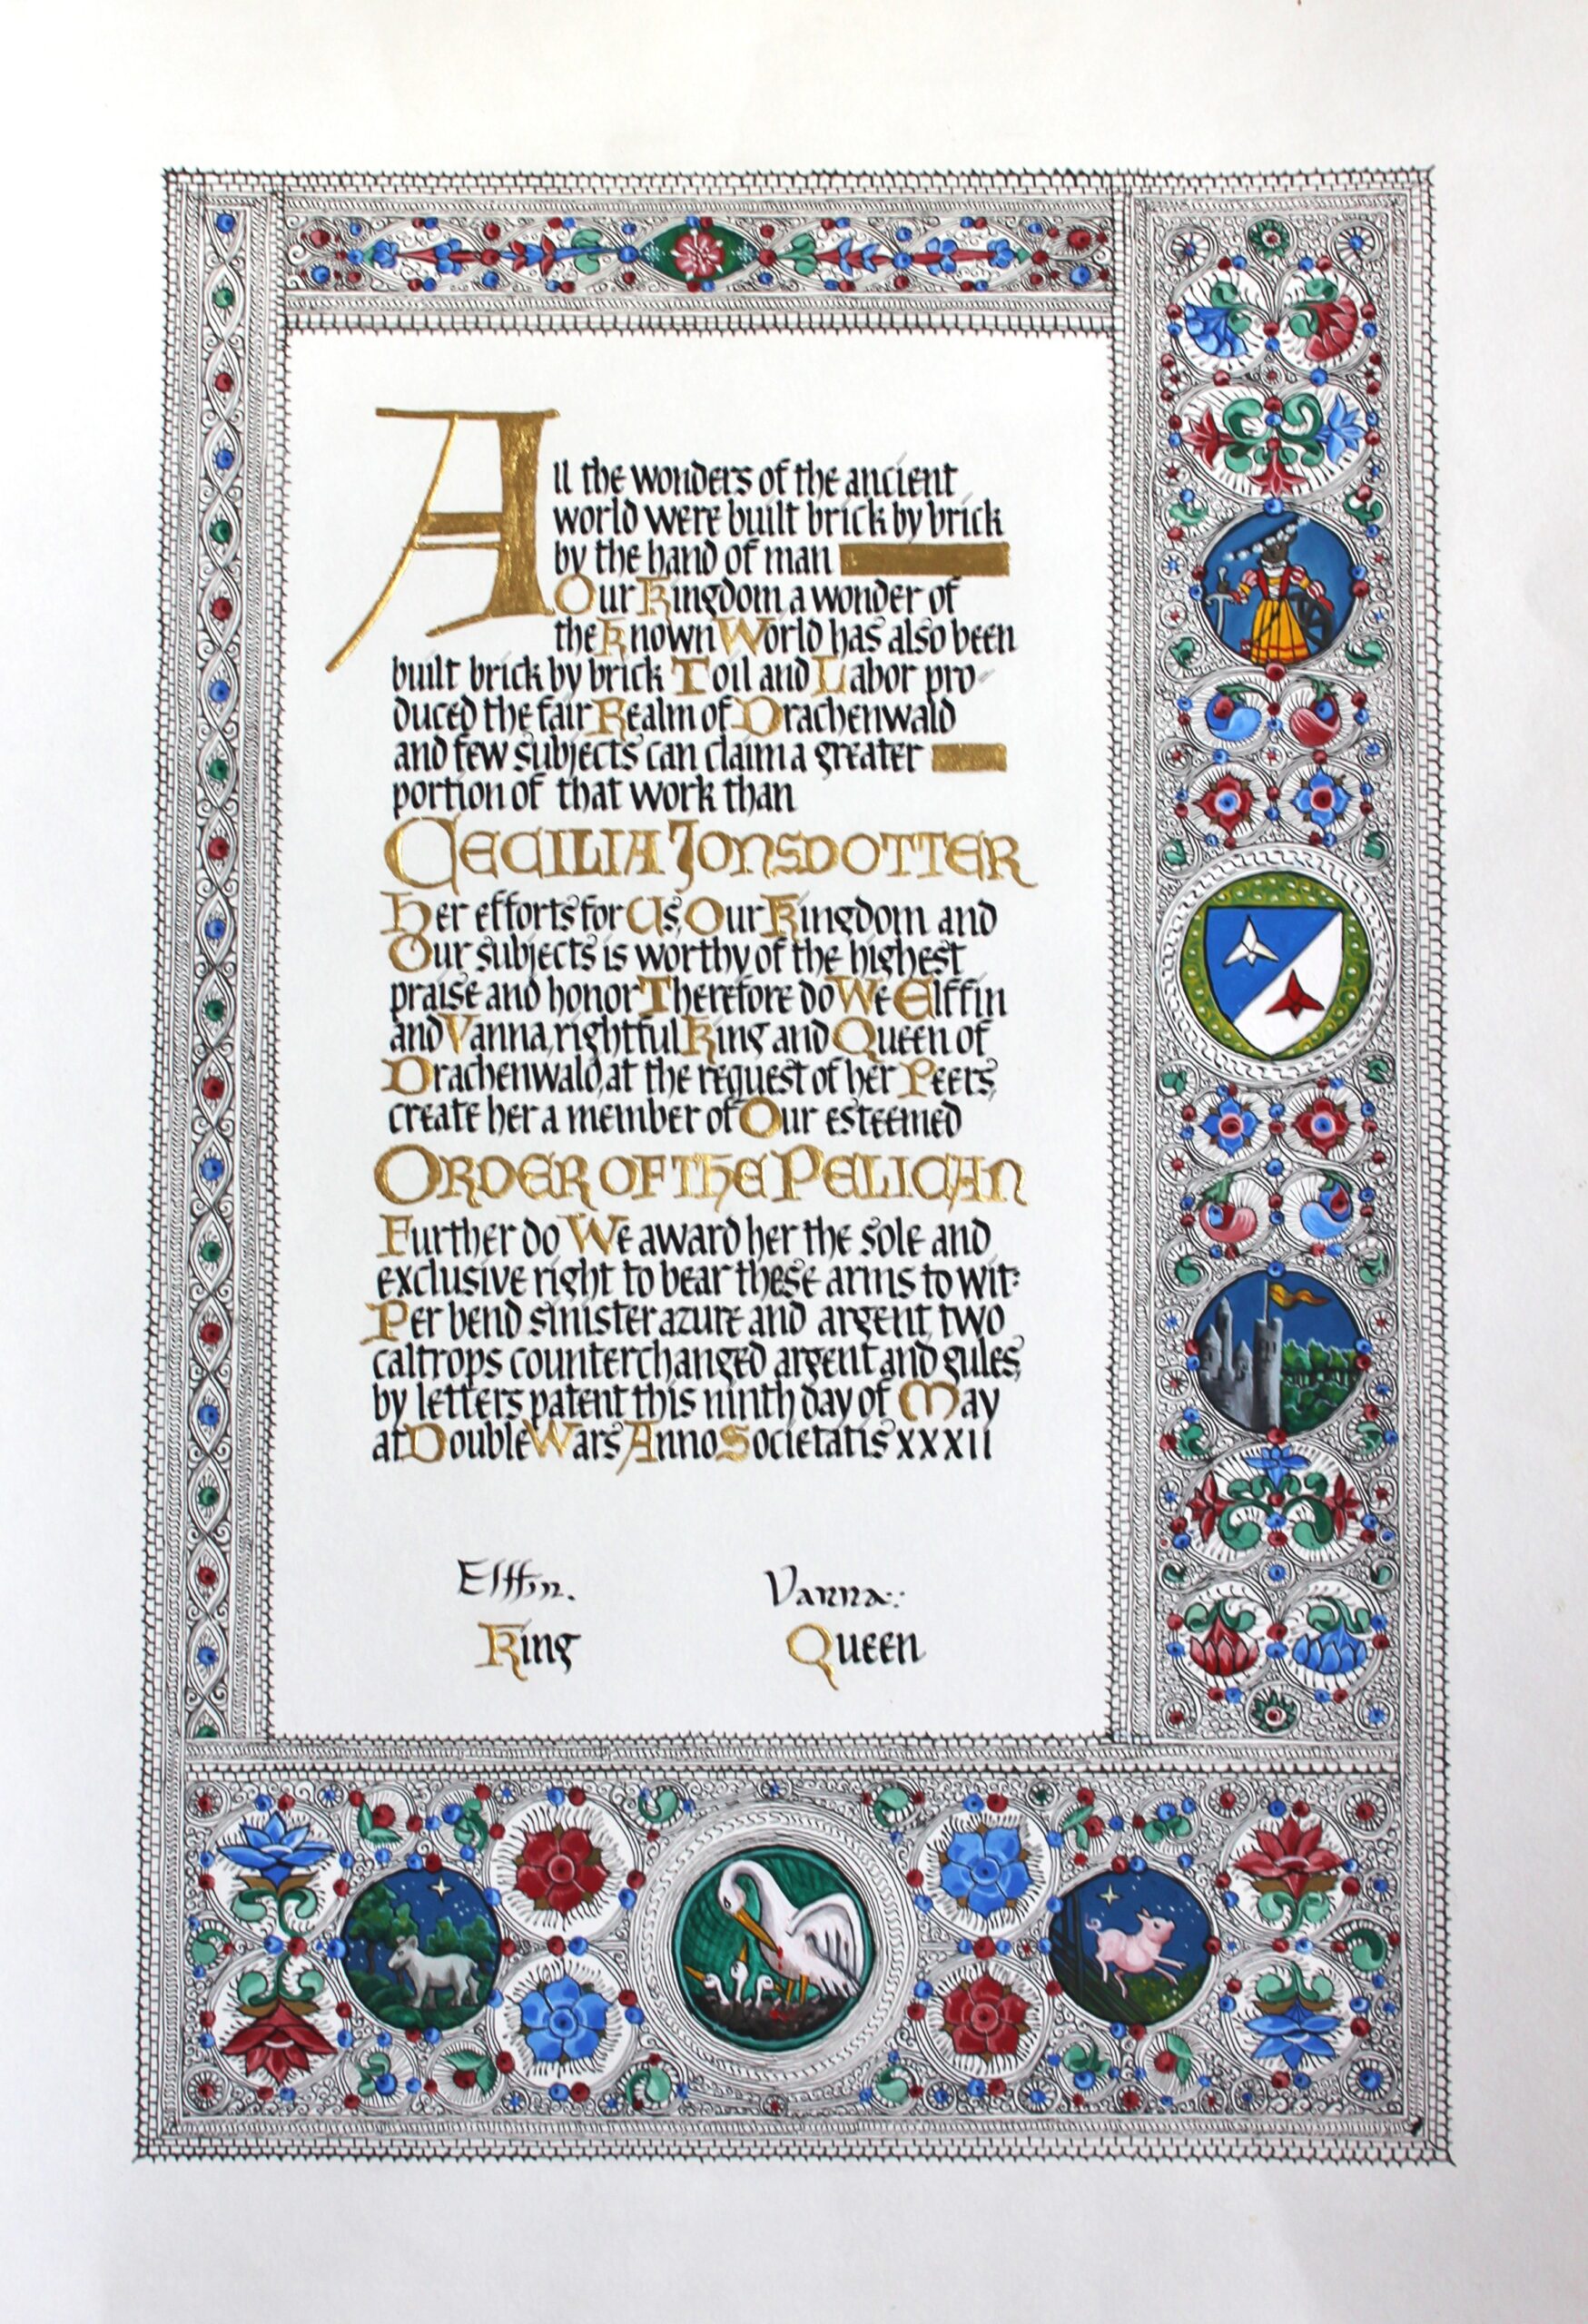 All the wonders of the ancient
world were built brick by brick
by the hand of man
Our Kingdom, a wonder of
the Known World has also been
built brick by brick Toil and Labor pro-
duced the fair Realm of Drachenwald
and few subjects can claim a greater
portion of that work than
CECILIA JONSDOTTER
Her efforts for Us, Our Kingdom and
Our subjects is worthy of the highest
praise and honor Therefore do We Elffin
and Vanna, rightful King and Queen of
Drachenwald, at the request of her Peers,
create her a member of Our esteemed
ORDER OF THE PELICAN
Further do We award her the sole and
exclusive right to bear these arms to wit:
Per bend sinister azure and argent, two
caltrops counterchanged argent and gules,
by letters patent this ninth day of May
at Double Wars Anno Societatis XXXII
Elffin. Vanna:·
King Queen